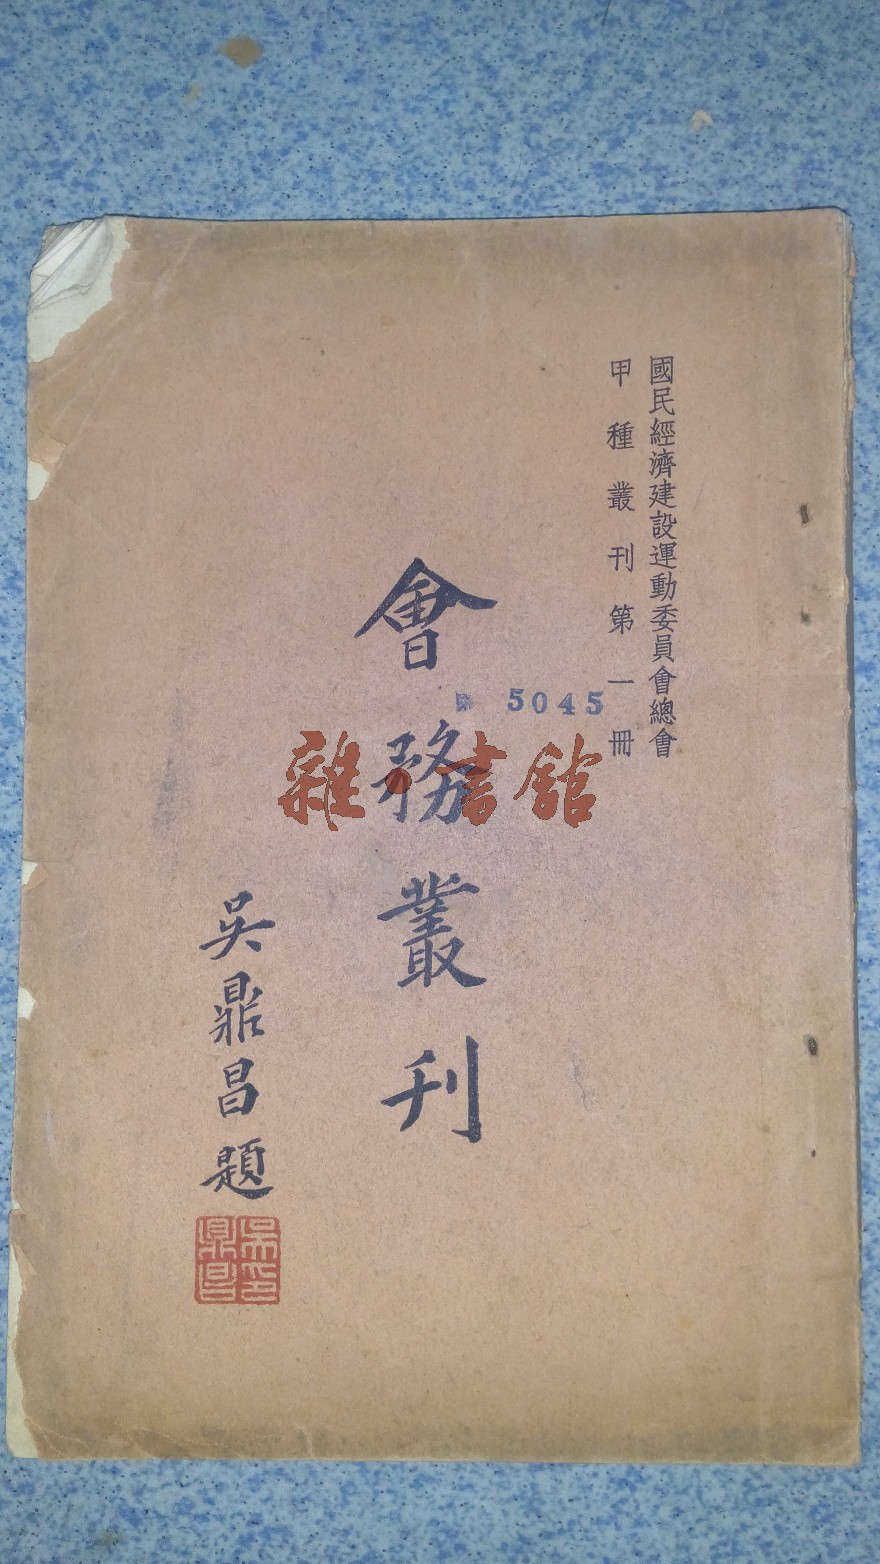 國民經濟建設運動委員會總會
甲種叢刊第一冊
會務叢刊
吳鼎昌題
吳印鼎昌
5045
雜·書館